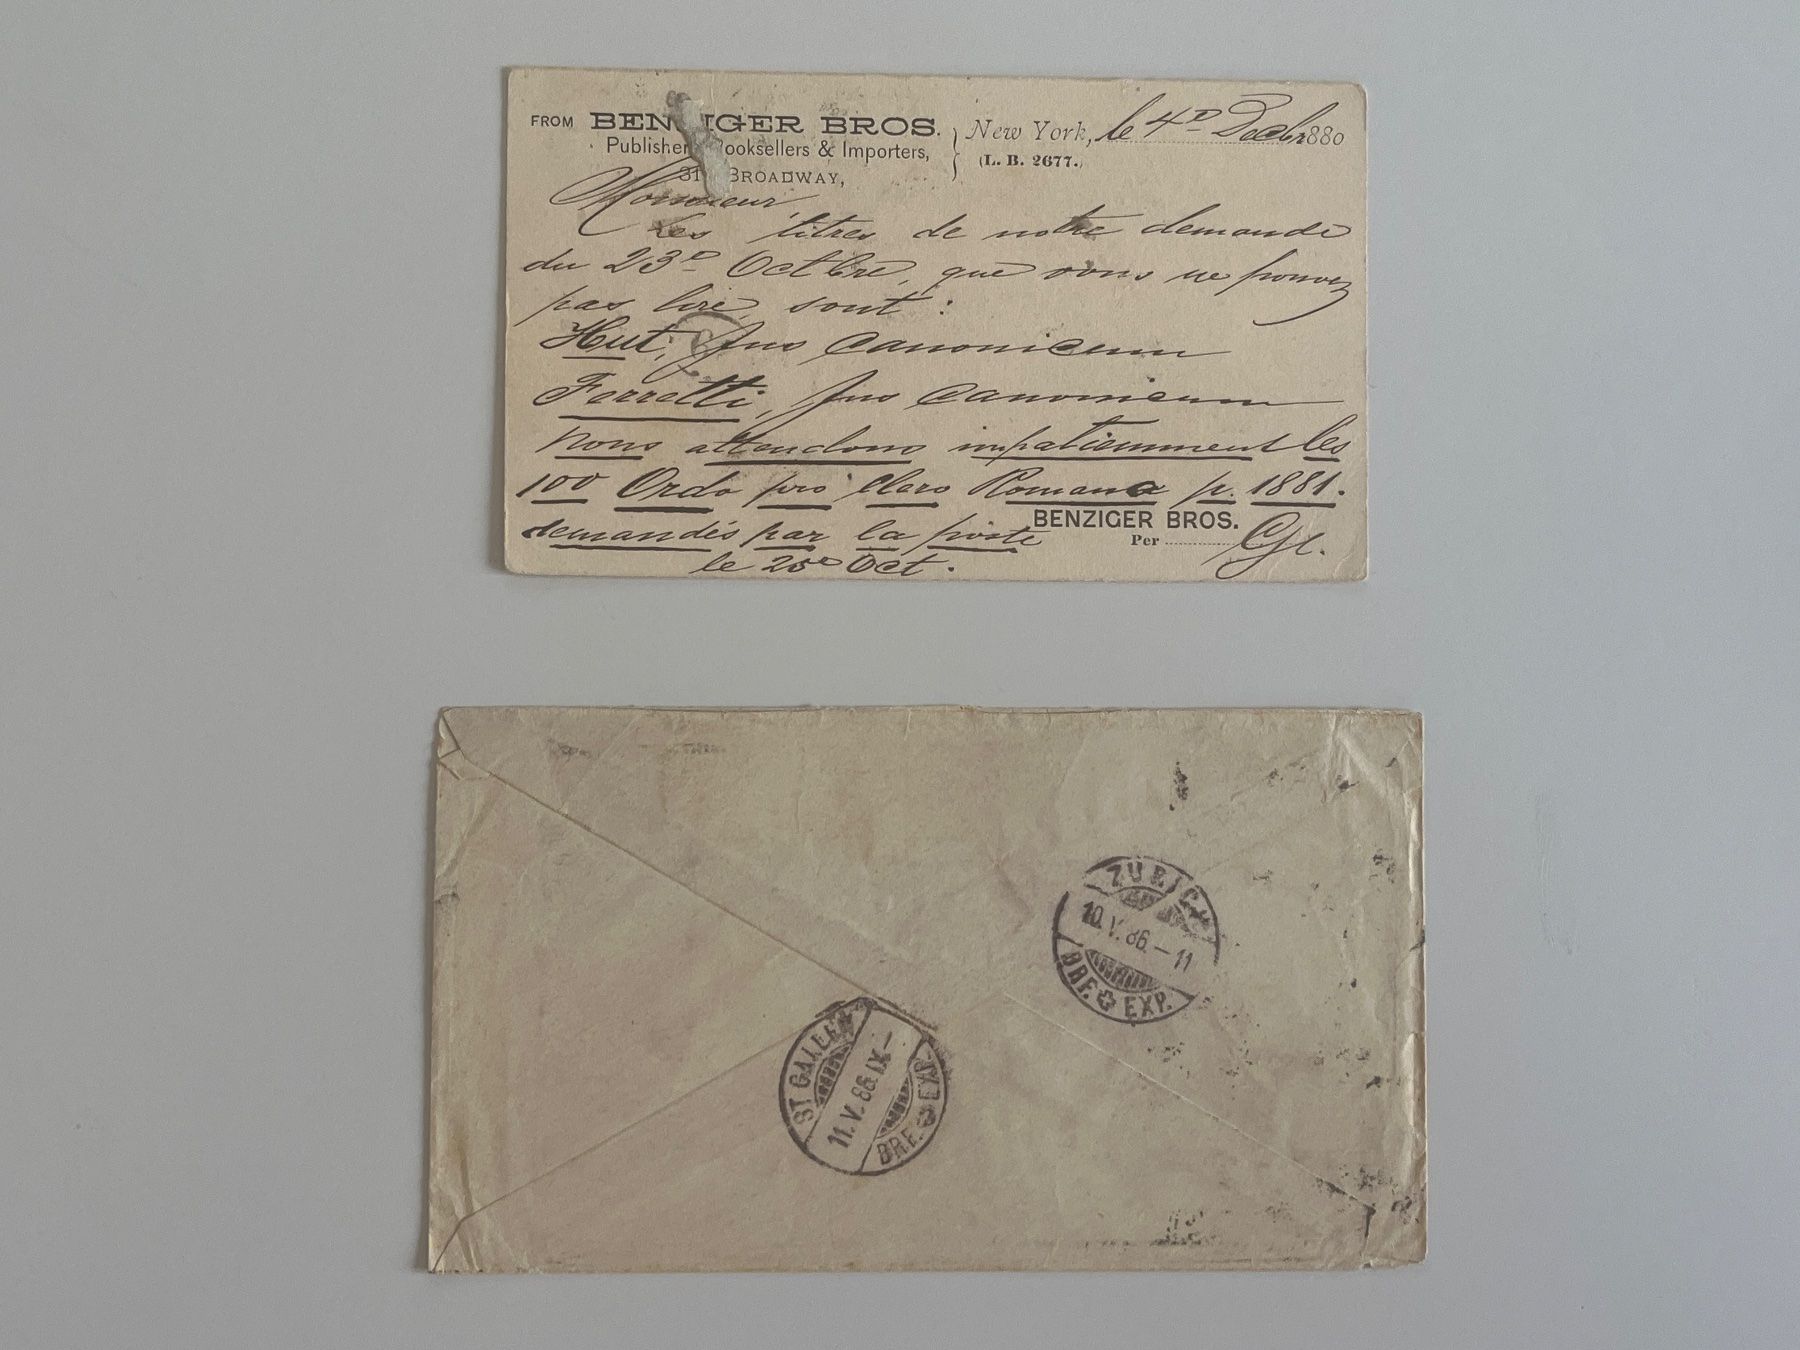 FROM BENZIGER BROS.
Publishers, Booksellers & Importers,
311 BROADWAY,
New York, le 4D Decbr 1880
(L. B. 2677.)
Monsieur,
Les titres de notre demande
du 23D Octbre, que vous ne pouvez
pas lire, sont :
Hut, Jus canonicum
Ferretti, Jus canonicum
nous attendons impatiemment les
100 Ordo pro Clero Romano p. 1881.
demandés par la poste
BENZIGER BROS.
Per
le 20e Oct.
ZURICH
10.V.86.–11
BRF. EXP.
ST. GALLEN
11.V.86.IX–
BRF. EXP.